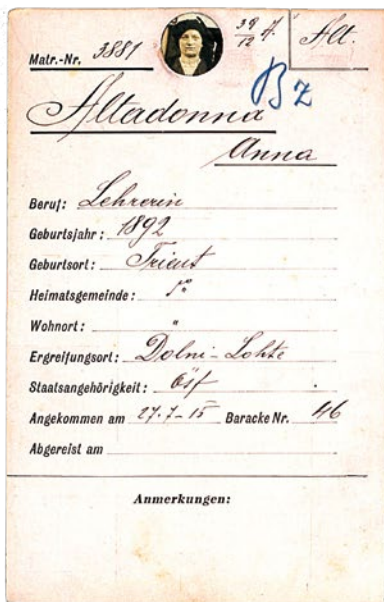 Matr.-Nr. 3881 38/12 A. Alt.
Bz
Altadonna
Anna
Beruf: Lehrerin
Geburtsjahr: 1892
Geburtsort: Trient
Heimatsgemeinde: do
Wohnort: "
Ergreifungsort: Dolni-Lohte
Staatsangehörigkeit: Öst
Angekommen am 27.7-15 Baracke Nr. 46
Abgereist am
Anmerkungen: